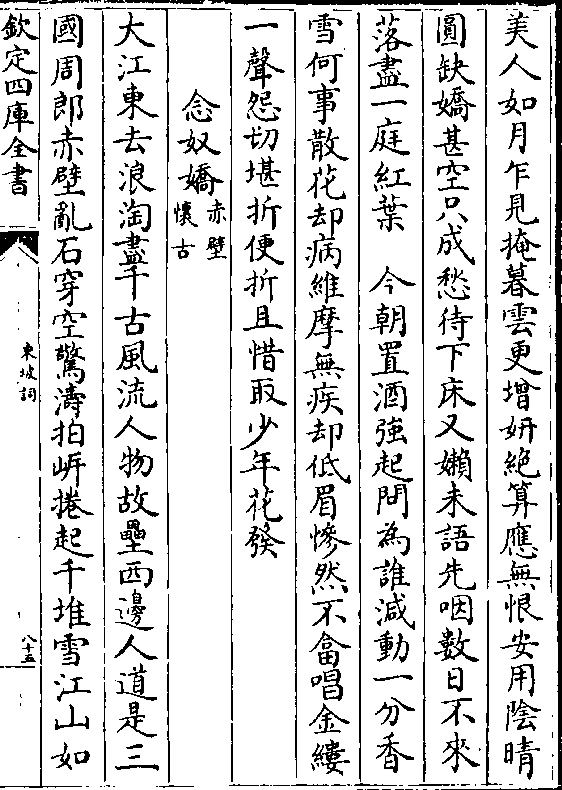 美人如月乍見掩暮雲更增妍絶算應無恨安用陰晴
圓缺嬌甚空只成愁待下床又嬾未語先咽數日不來
落盡一庭紅葉　今朝置酒強起問為誰減動一分香
雪何事散花却病維摩無疾却低眉慘然不畣唱金縷
一聲怨切堪折便折且惜取少年花發
念奴嬌赤壁懷古
大江東去浪淘盡千古風流人物故壘西邊人道是三
國周郎赤壁亂石穿空驚濤拍㟁捲起千堆雪江山如
欽定四庫全書
東坡詞
八十五